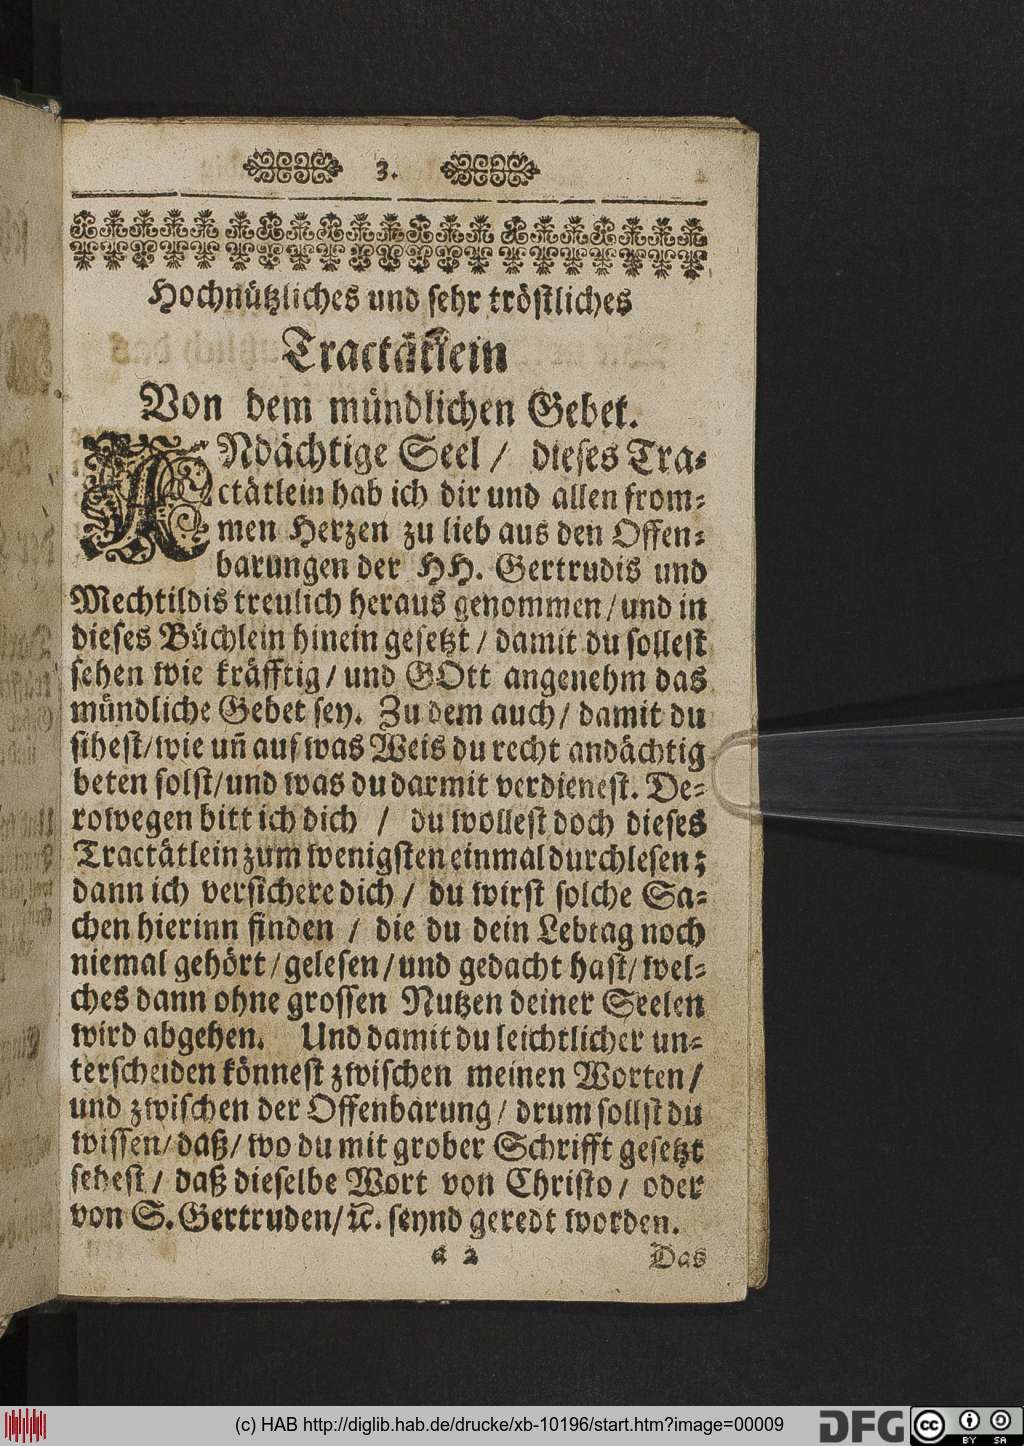 3.
Hochnützliches und sehr tröstliches
Tractätlein
Von dem mündlichen Gebet.
ANdächtige Seel / dieses Tra-
ctätlein hab ich dir und allen from-
men Herzen zu lieb aus den Offen-
barungen der HH. Gertrudis und
Mechtildis treulich heraus genommen / und in
dieses Büchlein hinein gesetzt / damit du sollest
sehen wie kräfftig / und GOtt angenehm das
mündliche Gebet sey. Zu dem auch / damit du
sihest / wie uñ auf was Weis du recht andächtig
beten solst / und was du darmit verdienest. De-
rowegen bitt ich dich / du wollest doch dieses
Tractätlein zum wenigsten einmal durchlesen;
dann ich versichere dich / du wirst solche Sa-
chen hierinn finden / die du dein Lebtag noch
niemal gehört / gelesen / und gedacht hast / wel-
ches dann ohne grossen Nutzen deiner Seelen
wird abgehen. Und damit du leichtlicher un-
terscheiden könnest zwischen meinen Worten /
und zwischen der Offenbarung / drum sollst du
wissen / daß / wo du mit grober Schrifft gesetzt
sehest / daß dieselbe Wort von Christo / oder
von S. Gertruden / ꝛc. seynd geredt worden.
a 2 Das
(c) HAB http://diglib.hab.de/drucke/xb-10196/start.htm?image=00009
DFG
cc BY SA